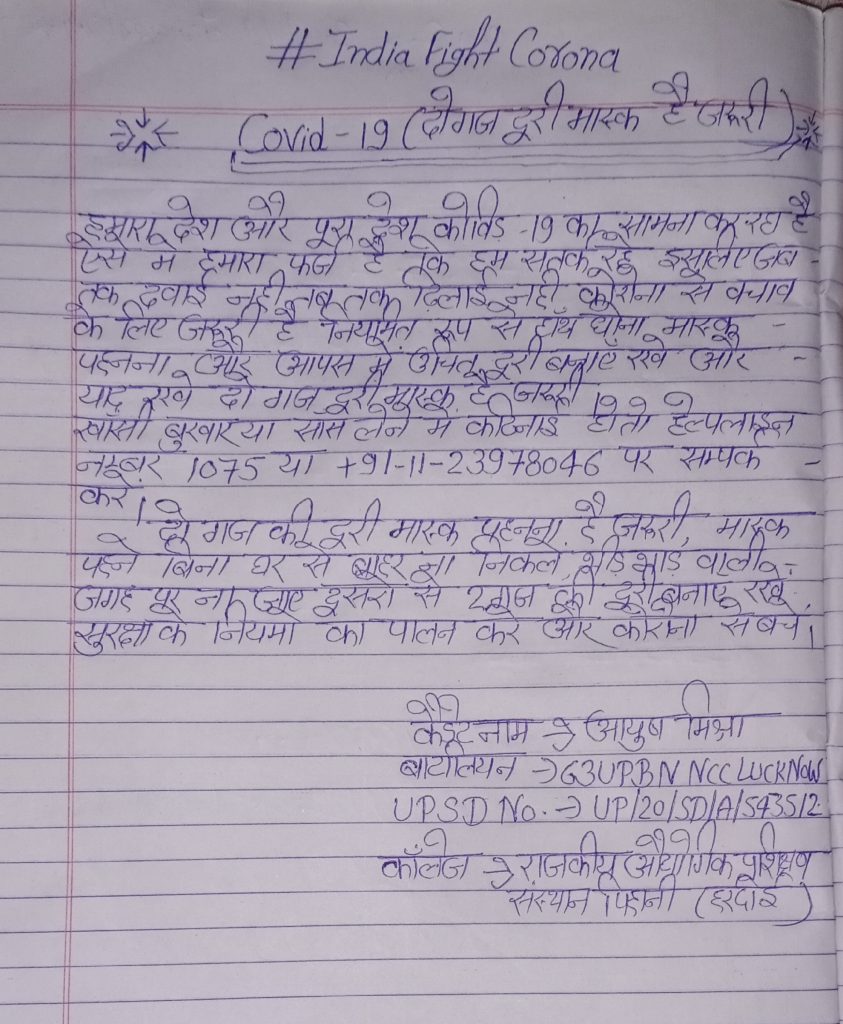 # India Fight Corona
Covid-19 (दो गज दूरी मास्क है जरूरी)
हमारा देश और पूरा देश कोविड -19 का सामना कर रहा है
ऐसे में हमारा फर्ज है कि हम सतर्क रहे इसलिए जब -
तक दवाई नहीं तब तक ढिलाई नहीं कोरोना से बचाव
के लिए जरूरी है नियमित रूप से हाँथ धोना मास्क -
पहनना और आपस में उचित दूरी बनाएं रखे और -
याद रखे दो गज दूरी मास्क है जरूरी
खाँसी बुखार या सांस लेने में कठिनाई हो तो हेल्पलाइन
नम्बर 1075 या +91-11-23978046 पर सम्पर्क -
करें।
दो गज की दूरी मास्क पहनना है जरूरी, मास्क
पहने बिना घर से बाहर ना निकले, भीड़ भाड़ वाली -
जगह पर ना जाए दूसरों से 2 गज की दूरी बनाए रखें
सुरक्षा के नियमों का पालन करें और कोरोना से बचें।
कैडेट नाम → आयुष मिश्रा
बाटालियन → 63 UP BN NCC LUCKNOW
UPSD No. → UP/20/SD/A/543512
कॉलेज → राजकीय औद्योगिक प्रशिक्षण
संस्थान पिहानी (हरदोई)